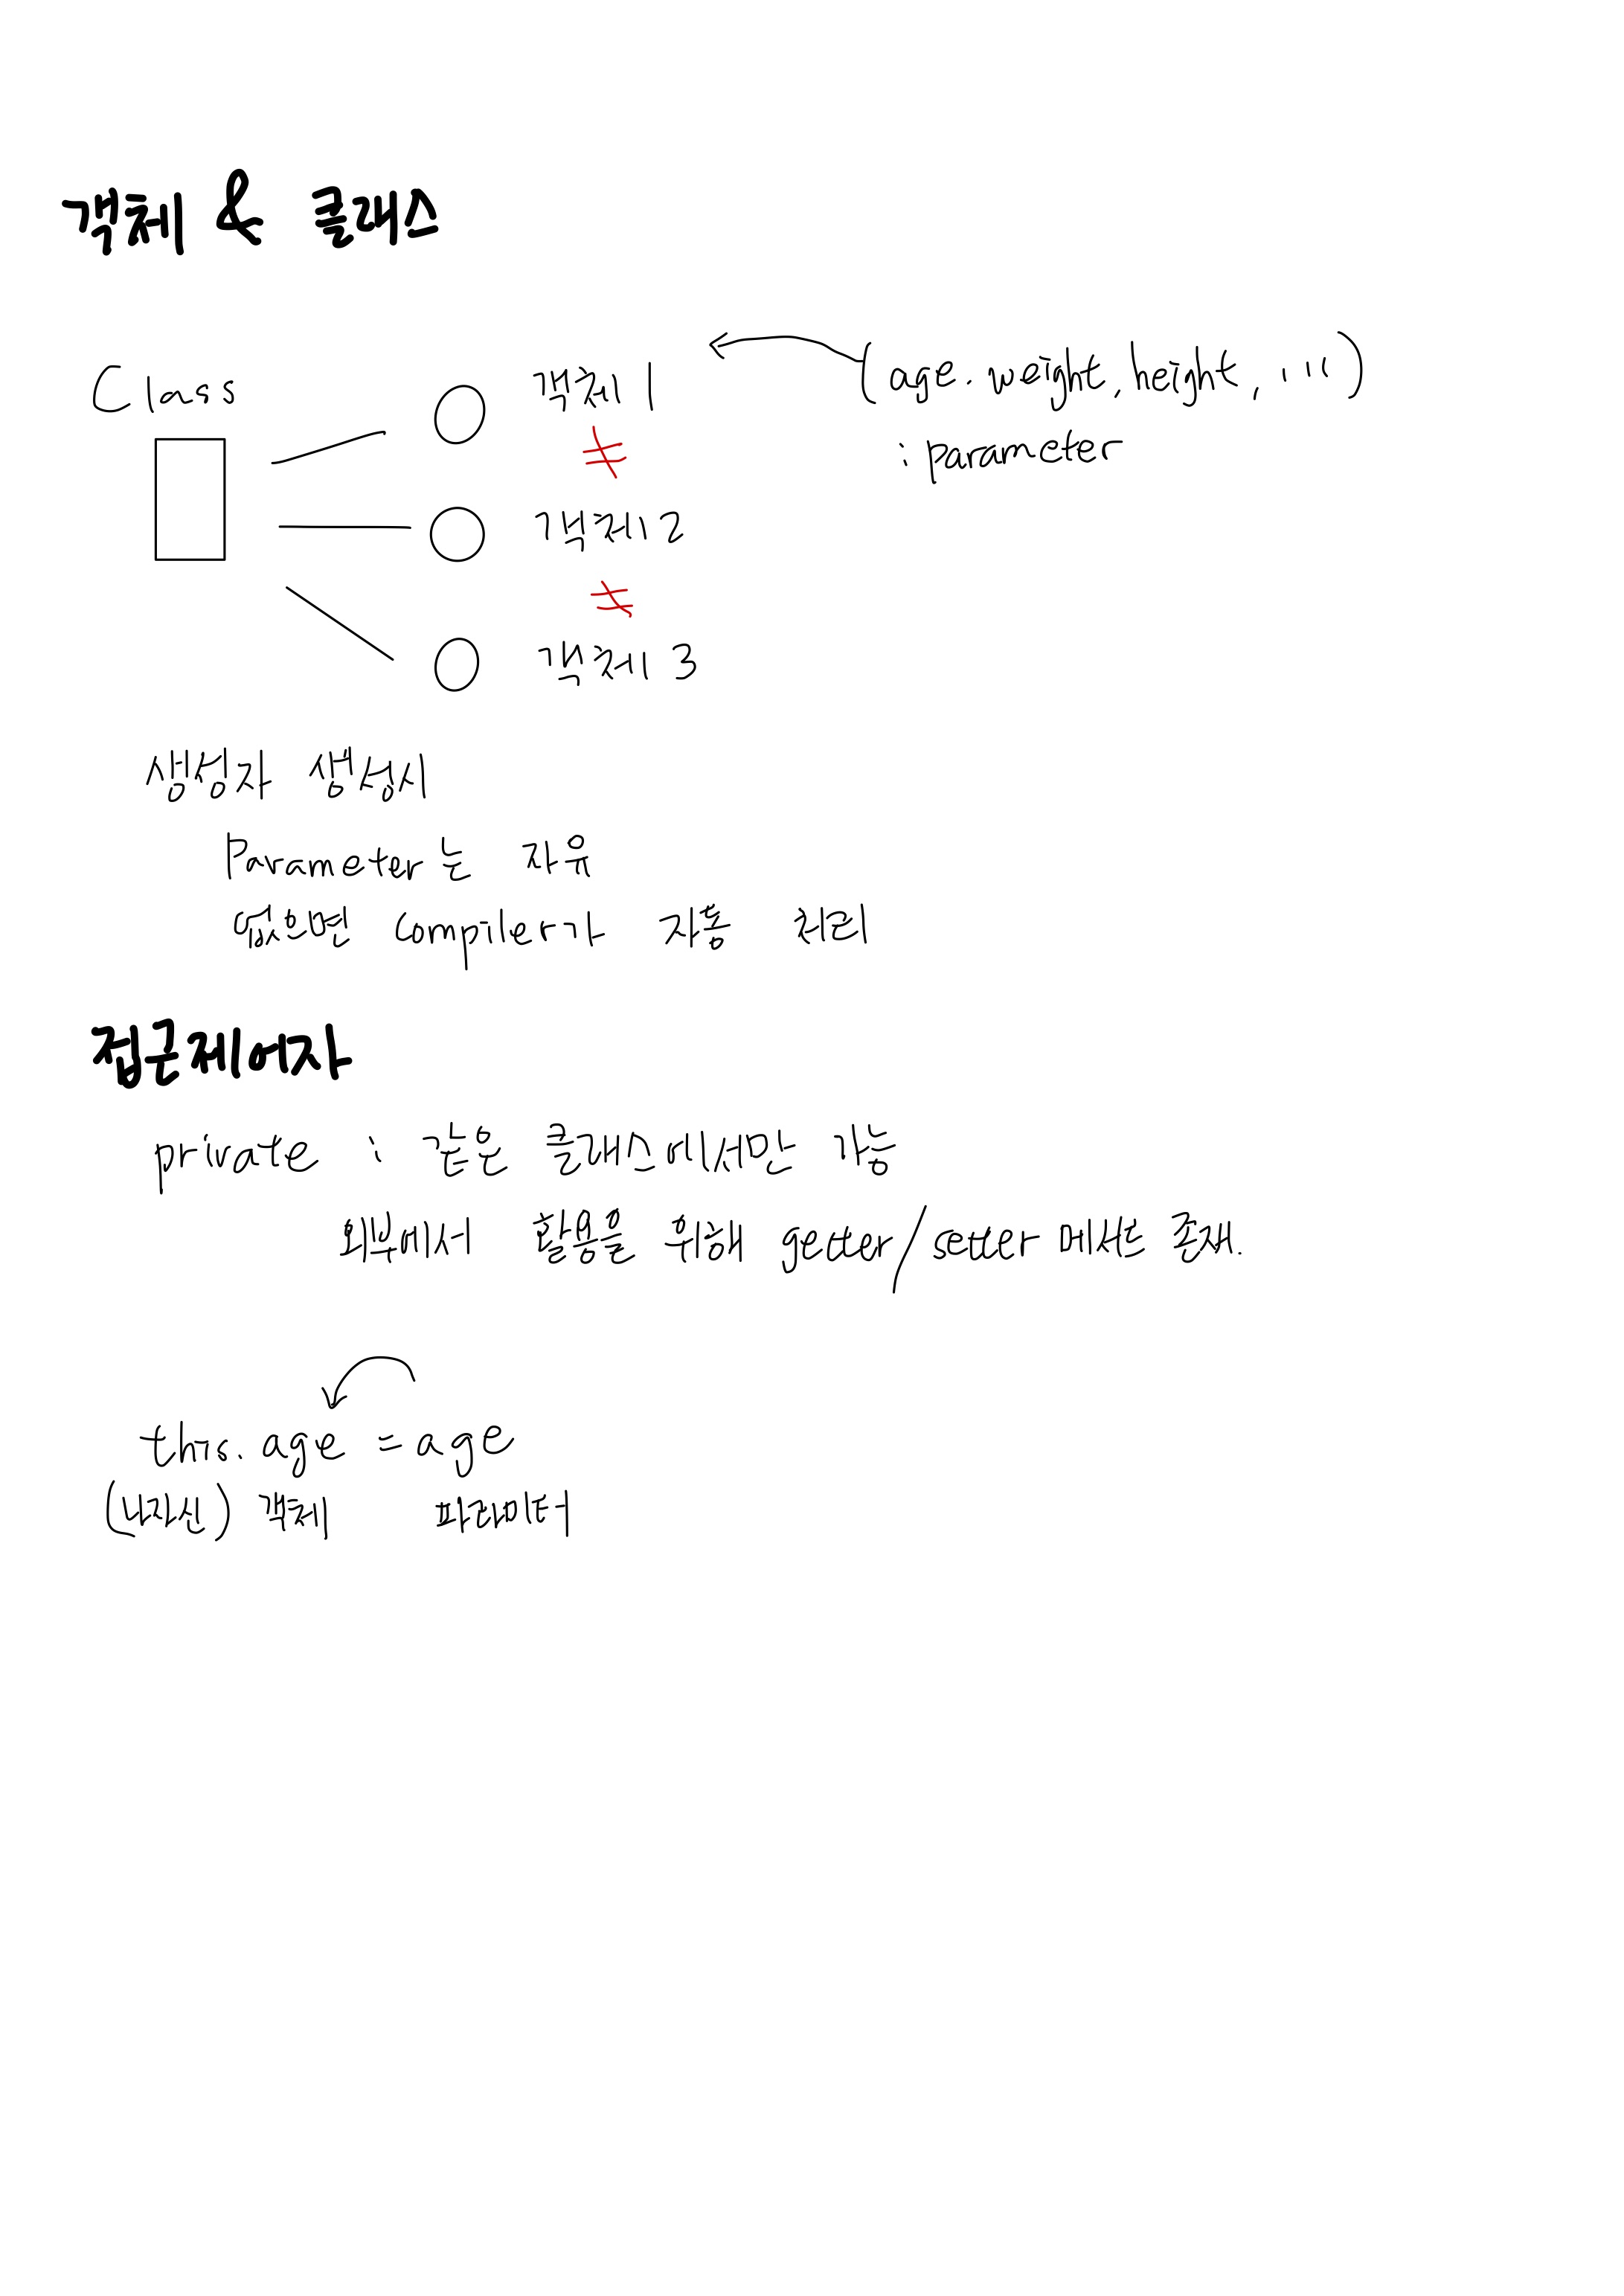 객체 & 클래스
Class
객체 1
(age. weight, height, ...)
: parameter
≠
객체 2
≠
객체 3
생성자 생성시
Parameter는 자유
없으면 Compiler가 자동 처리
접근제어자
private : 같은 클래스에서만 가능
외부에서 활용을 위해 getter/setter 메서드 존재.
this. age = age
(내자신) 객체 파라미터